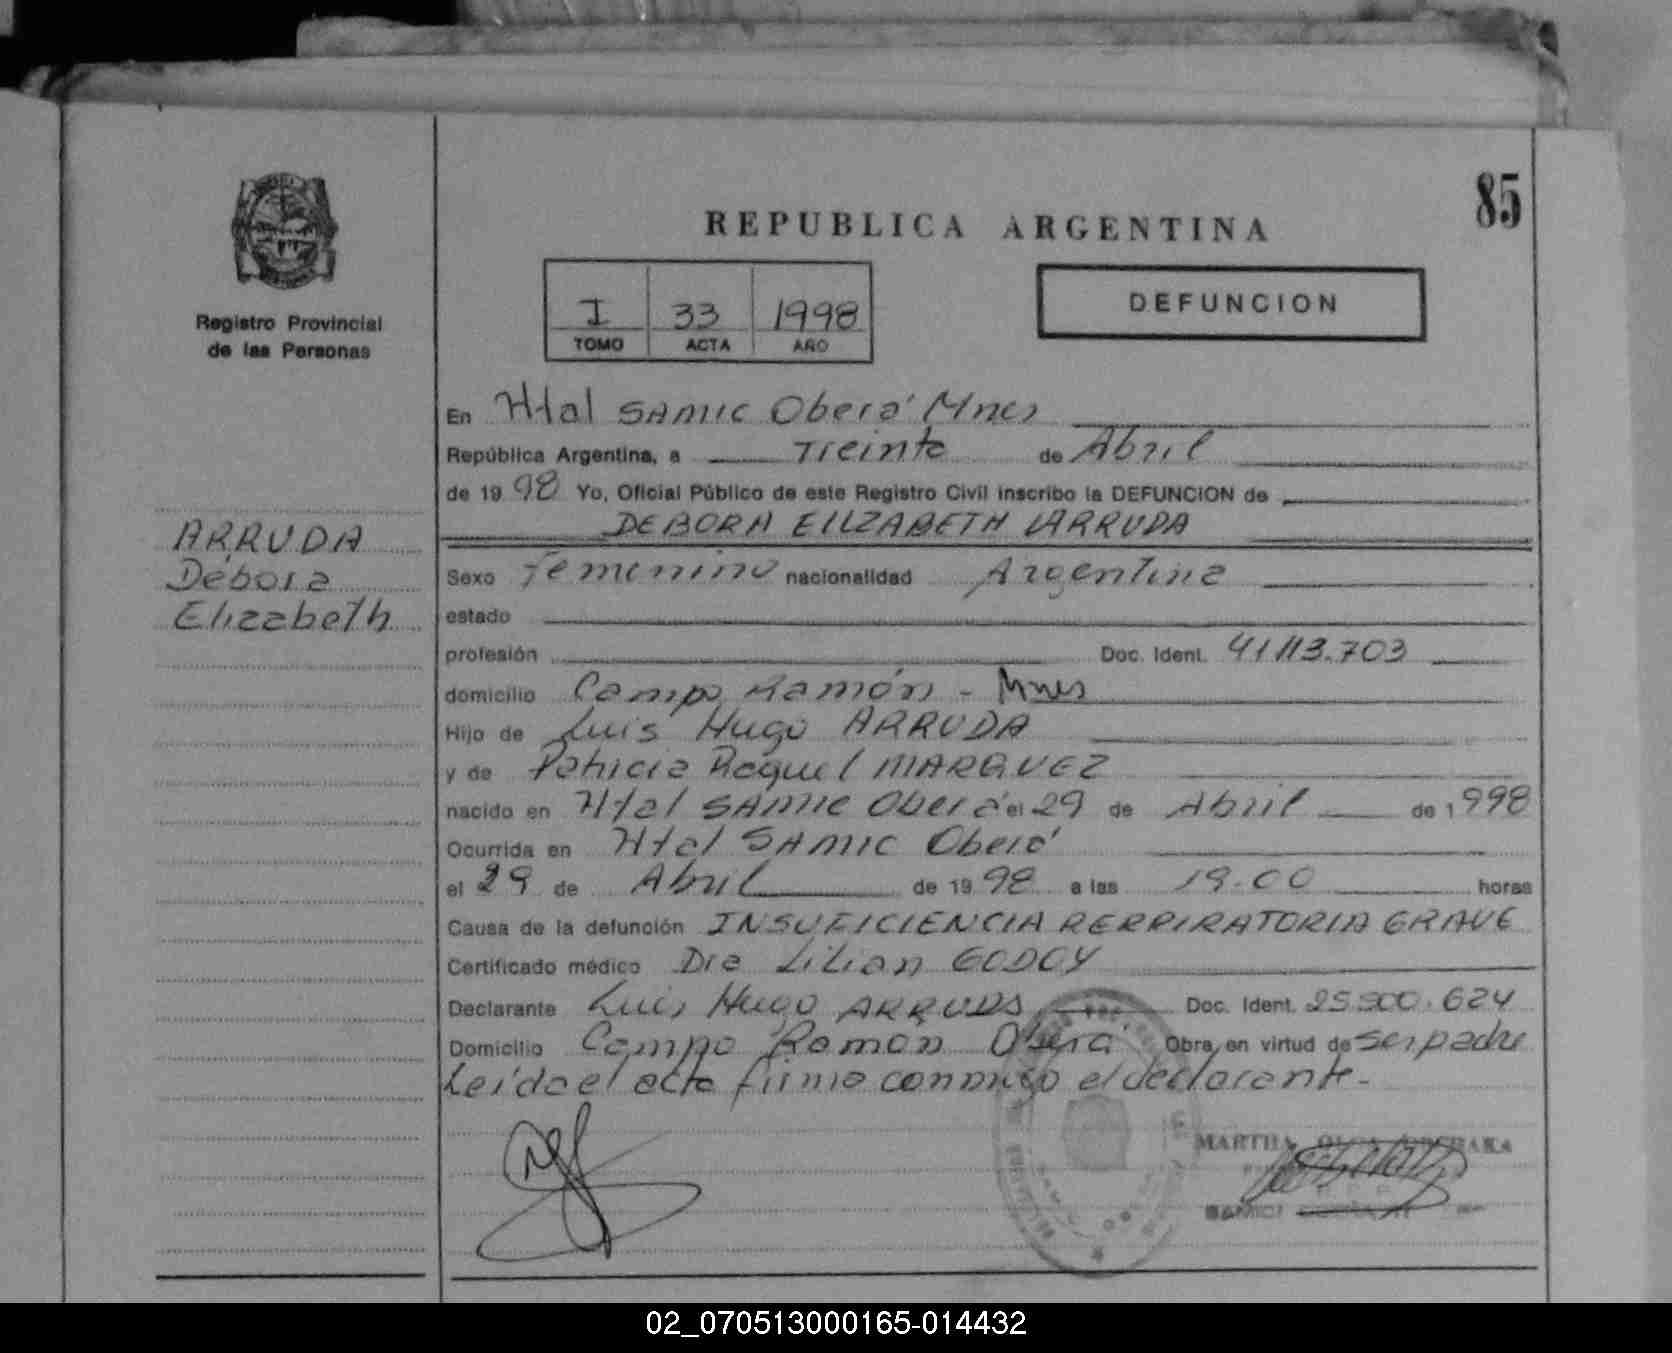 85
REPUBLICA ARGENTINA
Registro Provincial
de las Personas
I 33 1998
TOMO ACTA AÑO
DEFUNCION
ARRUDA
Débora
Elizabeth
En Htal SAMIC Oberá Mnes
República Argentina, a Treinta de Abril
de 1998 Yo, Oficial Público de este Registro Civil inscribo la DEFUNCION de
DEBORA ELIZABETH ARRUDA
Sexo Femenino nacionalidad Argentina
estado
profesión Doc. Ident. 41.113.703
domicilio Campo Ramón - Mnes
Hijo de Luis Hugo ARRUDA
y de Patricia Raquel MARQUEZ
nacido en Htal SAMIC Oberá el 29 de Abril de 1998
Ocurrida en Htal SAMIC Oberá
el 29 de Abril de 1998 a las 19.00 horas
Causa de la defunción INSUFICIENCIA RERPIRATORIA GRAVE
Certificado médico Dra Lilian GODOY
Declarante Luis Hugo ARRUDA Doc. Ident. 25.900.624
Domicilio Campo Ramón Oberá Obra, en virtud de ser padre
Leída el acta firma conmigo el declarante.-
MARTHA
02_070513000165-014432